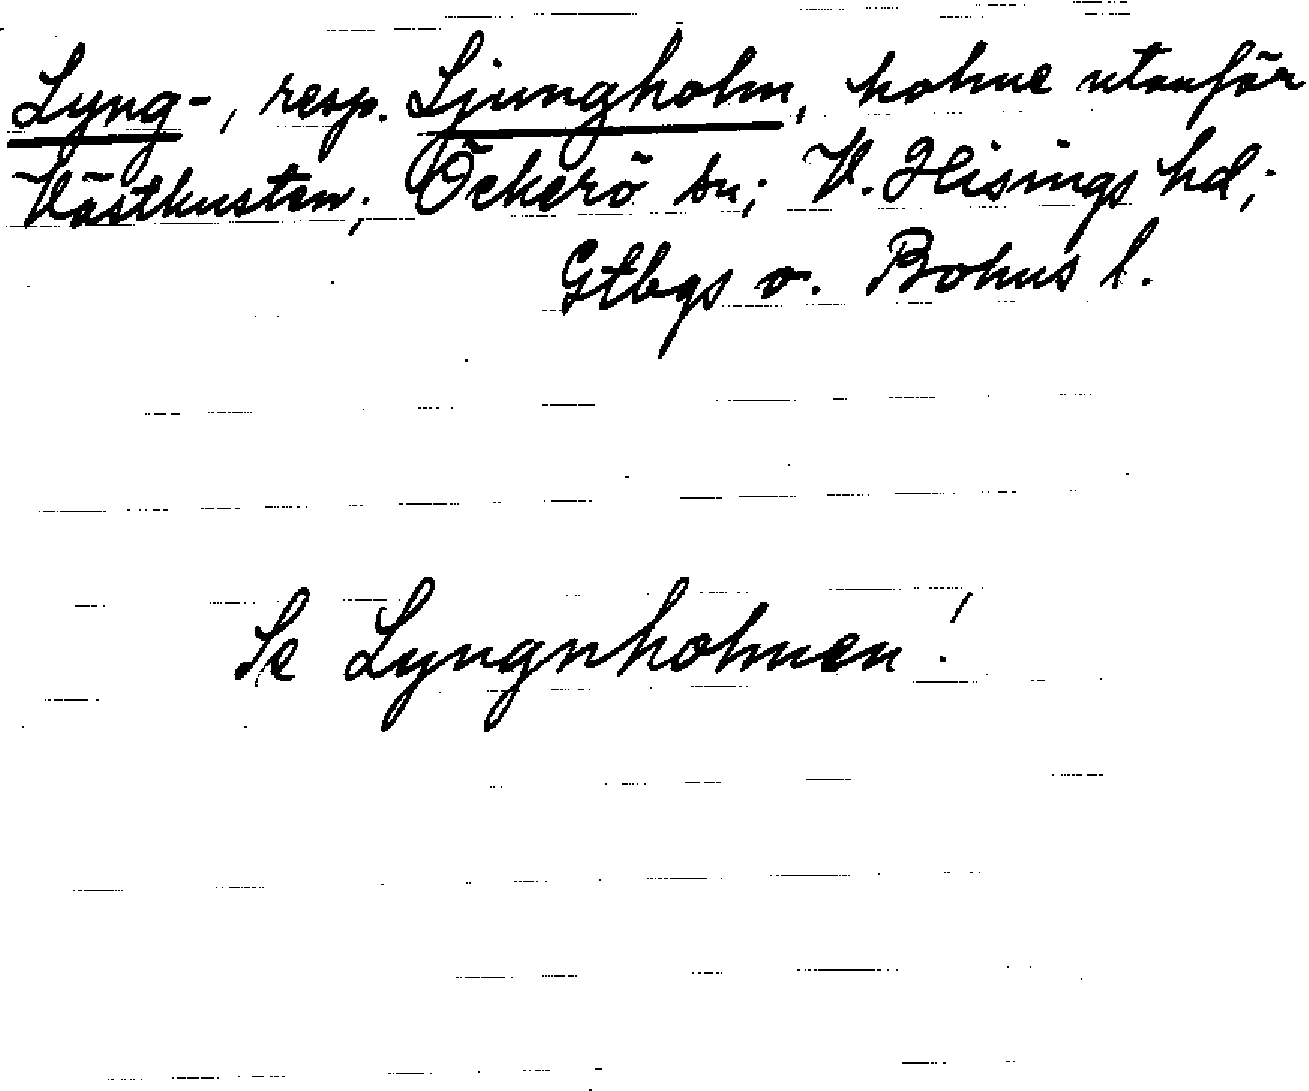 Lyng-, resp. Ljungholm, holme utanför
Västkusten; Öckerö sn; V. Hisings hd;
Gtbgs o. Bohus l.
Se Lyngnholmen!